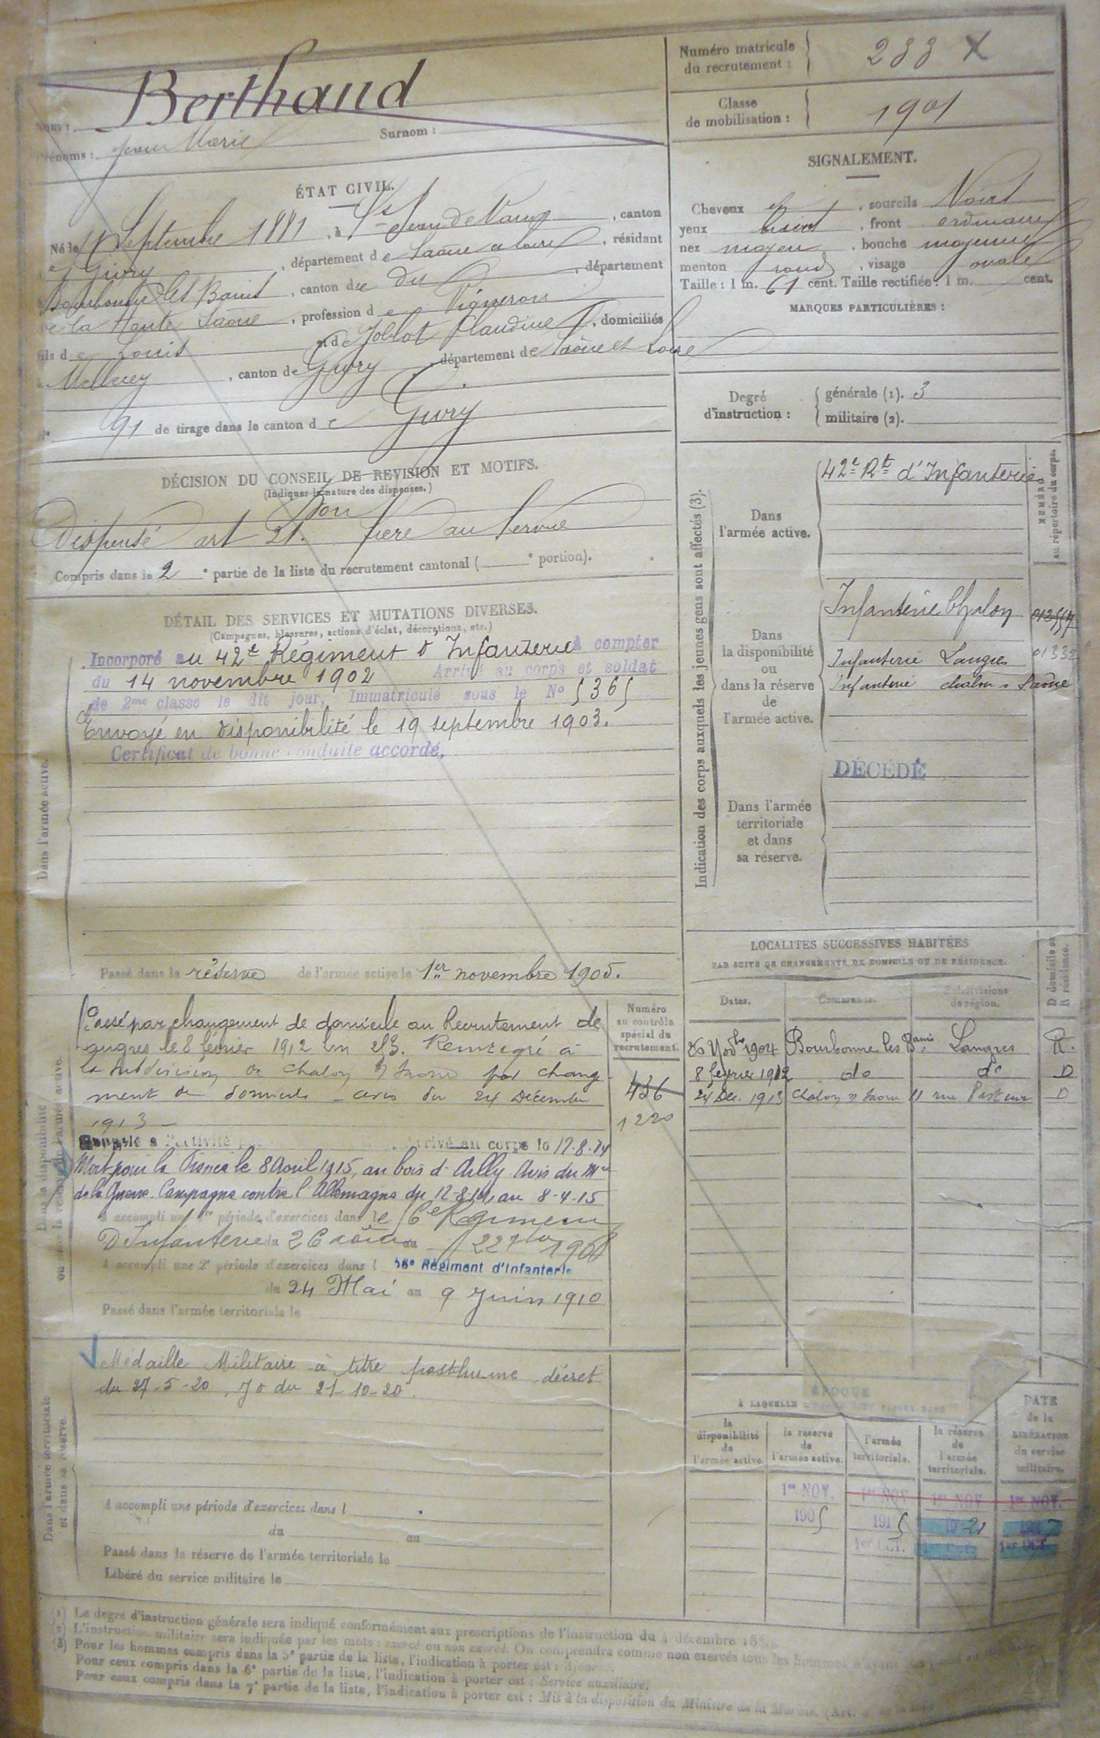 Berthaud
Numéro matricule
du recrutement : 233 X
Nom :
Prénoms : Jean Marie Surnom :
Classe
de mobilisation : 1901
ÉTAT CIVIL.
Né le 4 Septembre 1881, à St Jean de Vaux, canton
de Givry, département de Saône et Loire, résidant
Bourbonne les Bains, canton de du, département
de la Haute Saône, profession de Vigneron
fils de Louis et de Jollot Claudine, domiciliés
à Mellecey, canton de Givry, département de Saône et Loire
N° 91 de tirage dans le canton de Givry
SIGNALEMENT.
Cheveux et, sourcils Noirs
yeux, front ordinaire
nez moyen, bouche moyenne
menton rond, visage ovale
Taille : 1 m. 61 cent. Taille rectifiée : 1 m. cent.
MARQUES PARTICULIÈRES :
Degré
d'instruction : générale (1). 3
militaire (2).
DÉCISION DU CONSEIL DE REVISION ET MOTIFS.
(Indiquer la nature des dispenses.)
Bon
Dispensé art 21. frère au service
Compris dans la 2e partie de la liste du recrutement cantonal ( e portion).
DÉTAIL DES SERVICES ET MUTATIONS DIVERSES.
(Campagnes, blessures, actions d'éclat, décorations, etc.)
Dans l'armée active.
Incorporé au 42e Régiment d'Infanterie à compter
du 14 novembre 1902 Arrivé au corps et soldat
de 2me classe le dit jour, Immatriculé sous le No 5365
Envoyé en disponibilité le 19 septembre 1903.
Certificat de bonne conduite accordé.
Passé dans la réserve de l'armée active le 1er novembre 1905.
Indication des corps auxquels les jeunes gens sont affectés (3).
NUMÉRO
au répertoire du corps.
Dans
l'armée active.
42e Rt d'Infanterie
Dans
la disponibilité
ou
dans la réserve
de
l'armée active.
Infanterie Chalon
Infanterie Langres
Infanterie chalon s Saône
Dans l'armée
territoriale
et dans
sa réserve.
DÉCÉDÉ
Dans la disponibilité
ou dans la réserve de l'armée active.
Numéro
au contrôle
spécial du
recrutement.
436
1220
Passé par changement de domicile au Recrutement de
Langres le 8 février 1912 Réintégré à
la subdivision de Chalon s/ Saone par change
ment de domicile avis du 24 Décembre
1913
Rappelé à l'activité Arrivé au corps le 12-8-14
Mort pour la France le 8 Avril 1915, au bois d'Ailly Avis du Mre
de la Guerre. Campagne contre l'Allemagne du 12-8-14 au 8-4-15
A accompli une 1re période d'exercices dans le Régiment
D'Infanterie du 26 au
A accompli une 2e période d'exercices dans l 56e Régiment d'Infanterie
du 24 Mai au 9 Juin 1910
Passé dans l'armée territoriale le
LOCALITÉS SUCCESSIVES HABITÉES
PAR SUITE DE CHANGEMENTS DE DOMICILE OU DE RÉSIDENCE.
Dates. Communes. Subdivisions
de région. D domicile ou
R résidence.
Novbre 1904 Bourbonne les Bains Langres R.
8 février 1912 do do D
24 Déc. 1913 Chalon s/ Saone 11 rue Pasteur D
Dans l'armée territoriale
et dans sa réserve.
Médaille Militaire à titre posthume décret
du 27-5-20, JO du 21-10-20.
A accompli une période d'exercices dans l
du au
Passé dans la réserve de l'armée territoriale le
Libéré du service militaire le
ÉPOQUE
À LAQUELLE
la
disponibilité
de
l'armée active.
la réserve
de
l'armée active.
l'armée
territoriale.
la réserve
de
l'armée
territoriale.
DATE
de la
LIBÉRATION
du service
militaire.
1er NOV. 1er NOV 1er NOV 1er NOV.
1905 1915 1921
1er OCT. 1er OCT.
(1) Le degré d'instruction générale sera indiqué conformément aux prescriptions de l'Instruction du 4 décembre
(2) L'instruction militaire sera indiquée par les mots : exercé ou non exercé. On comprendra comme non exercés tous les hommes
(3) Pour les hommes compris dans la 5e partie de la liste, l'indication à porter est :
Pour ceux compris dans la 6e partie de la liste, l'indication à porter est : Service auxiliaire.
Pour ceux compris dans la 7e partie de la liste, l'indication à porter est : Mis à la disposition du Ministre de la Marine. (Art.